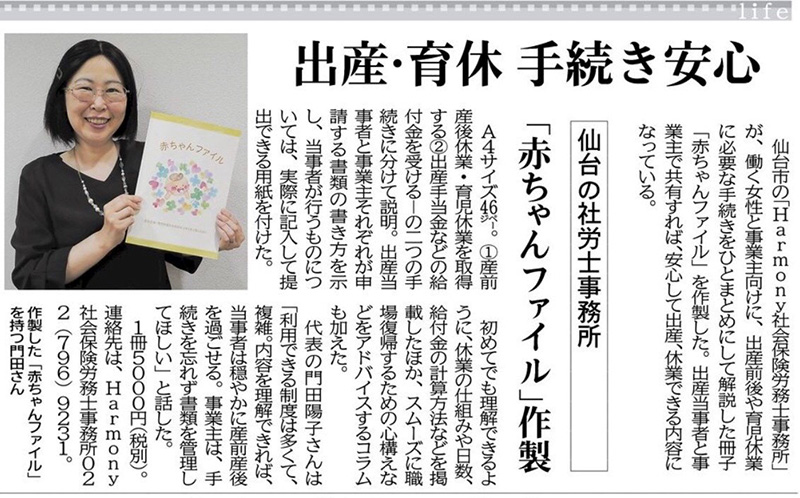 life
出産・育休 手続き安心
「赤ちゃんファイル」作製
仙台の社労士事務所
仙台市の「Harmony社会保険労務士事務所」
が、働く女性と事業主向けに、出産前後や育児休業
に必要な手続きをひとまとめにして解説した冊子
「赤ちゃんファイル」を作製した。出産当事者と事
業主で共有すれば、安心して出産、休業できる内容に
なっている。
A4サイズ46㌻。①産前
産後休業・育児休業を取得
する②出産手当金などの給
付金を受ける―の二つの手
続きに分けて説明。出産当
事者と事業主それぞれが申
請する書類の書き方を示
し、当事者が行うものにつ
いては、実際に記入して提
出できる用紙を付けた。
初めてでも理解できるよ
うに、休業の仕組みや日数、
給付金の計算方法などを掲
載したほか、スムーズに職
場復帰するための心構えな
どをアドバイスするコラム
も加えた。
代表の門田陽子さんは
「利用できる制度は多くて、
複雑。内容を理解できれば、
当事者は穏やかに産前産後
を過ごせる。事業主は、手
続きを忘れず書類を管理し
てほしい」と話した。
1冊5000円(税別)。
連絡先は、Harmony
社会保険労務士事務所02
2(796)9231。
赤ちゃんファイル
作製した「赤ちゃんファイル」
を持つ門田さん